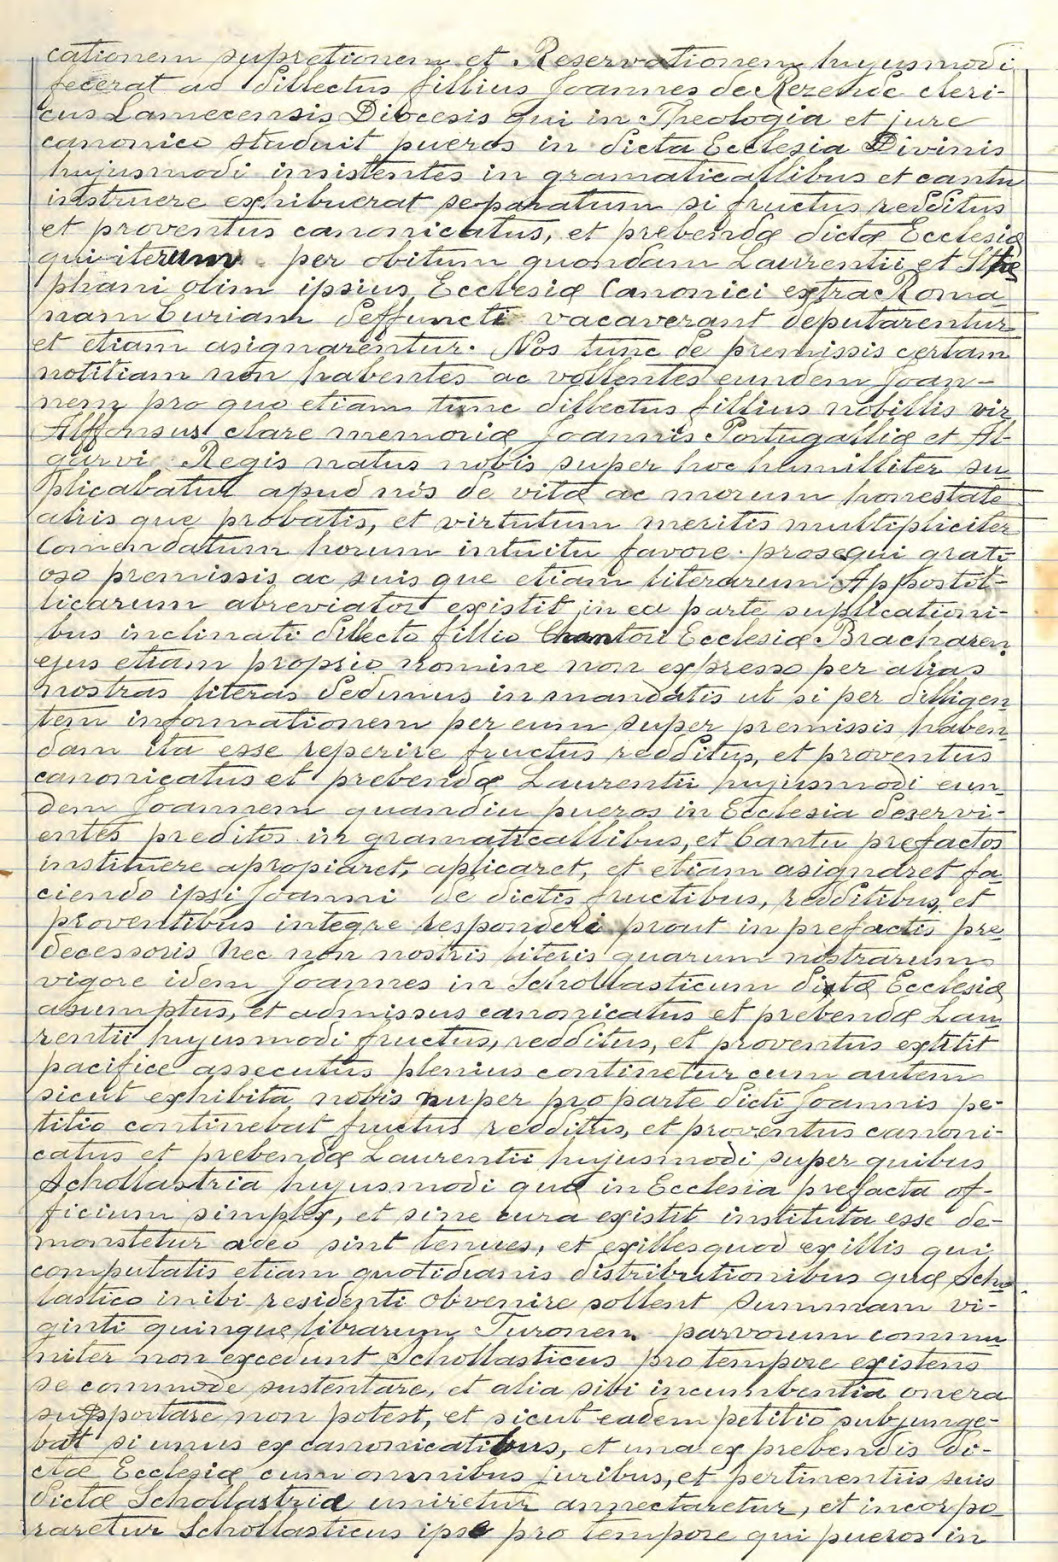 cationem supretionem et Reservationem hujusmodi
fecerat ad dillectus fillius Joannes de Rezende cleri-
cus Lamecensis Diocesis qui in Theologia et jure
canonico studuit pueros in dicta Ecclesia Divinis
hujusmodi insistentes in gramaticallibus et cantu
instruere exhibuerat separatum si fructus redditus
et proventus canonicatus, et prebendæ dictæ Ecclesiæ
qui iterum per obitum quondam Laurentii et Ste
phani olim ipsius Ecclesiæ Canonici extra Roma-
nam Curiam deffuncti vacaverant deputarentur
et etiam asignarentur. Nos tunc de premissis certam
notitiam non habentes ac vollentes eundem Joan-
nem pro quo etiam tunc dillectus fillius nobillis vir
Alffonsus clare memoriæ Joannis Portugalliæ et Al-
garvi Regis natus nobis super hoc humilliter su
plicabatur apud nos de vitæ ac morum honestate
aliis que probatis, et virtutum meritis multipliciter
Comendatum horum intuitu favore prosequi grati
oso premissis ac suis que etiam literarum Appostol-
licarum abreviator existit in ea parte suplicationi-
bus inclinati dillecto fillio Chantori Ecclesiæ Bracharen.
ejus etiam proprio nomine non expresso per alias
nostras literas dedimus in mandatis ut si per dilligen
tem informationem per eum super premissis haben-
dam ita esse reperire fructus redditus, et proventus
canonicatus et prebendæ Laurentii hujusmodi eun-
dem Joannem quandiu pueros in Ecclesia deservi-
entes preditos in gramaticallibus, et Cantu prefactos
instituere apropiaret, aplicaret, et etiam asignaret fa-
ciendo ipsi Joanni de dictis fructibus, redditibus, et
proventibus integre responderi prout in prefactis pre-
decessoris Nec non nostris literis quarum nostrarum
vigore idem Joannes in Schollasticum dictæ Ecclesiæ
asumptus, et admissus canonicatus et prebendæ Lau-
rentii hujusmodi fructus, redditus, et proventus extitit
pacifice assecutus plenius continetur cum autem
sicut exhibita nobis nuper pro parte dicti Joannis pe-
titio continebat fructus redditus, et proventus canoni-
catus et prebendæ Laurentii hujusmodi super quibus
Schollastria hujusmodi quæ in Ecclesia prefacta of-
ficium simplex, et sine cura existit instituta esse de-
monstetur adeo sint tenues, et exilles quod ex illis qui
computatis etiam quotidianis distributionibus quæ Scho
lastico inibi residenti obvenire sollent summam vi-
ginti quinque librarum Turonen. parvorum commu
niter non excedunt Schollasticus pro tempore existens
se commode sustentare, et alia sibi incumbentia onera
supportare non potest, et sicut eadem petitio subjunge-
bat si unus ex canonicatibus, et una ex prebendis di-
ctæ Ecclesiæ cum omnibus juribus, et pertinentiis suis
dictæ Schollastriæ uniretur annectaretur, et incorpo
raretur Schollasticus ipse pro tempore qui pueros in